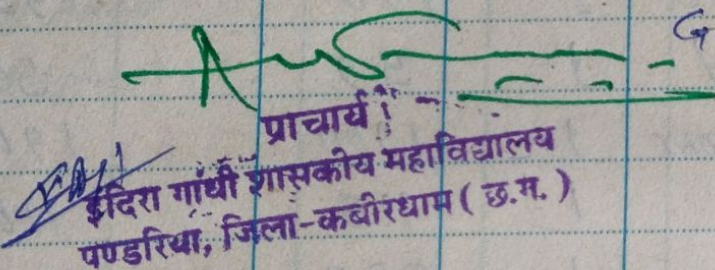 G
प्राचार्य
इंदिरा गांधी शासकीय महाविद्यालय
पण्डरिया, जिला-कबीरधाम ( छ.ग. )